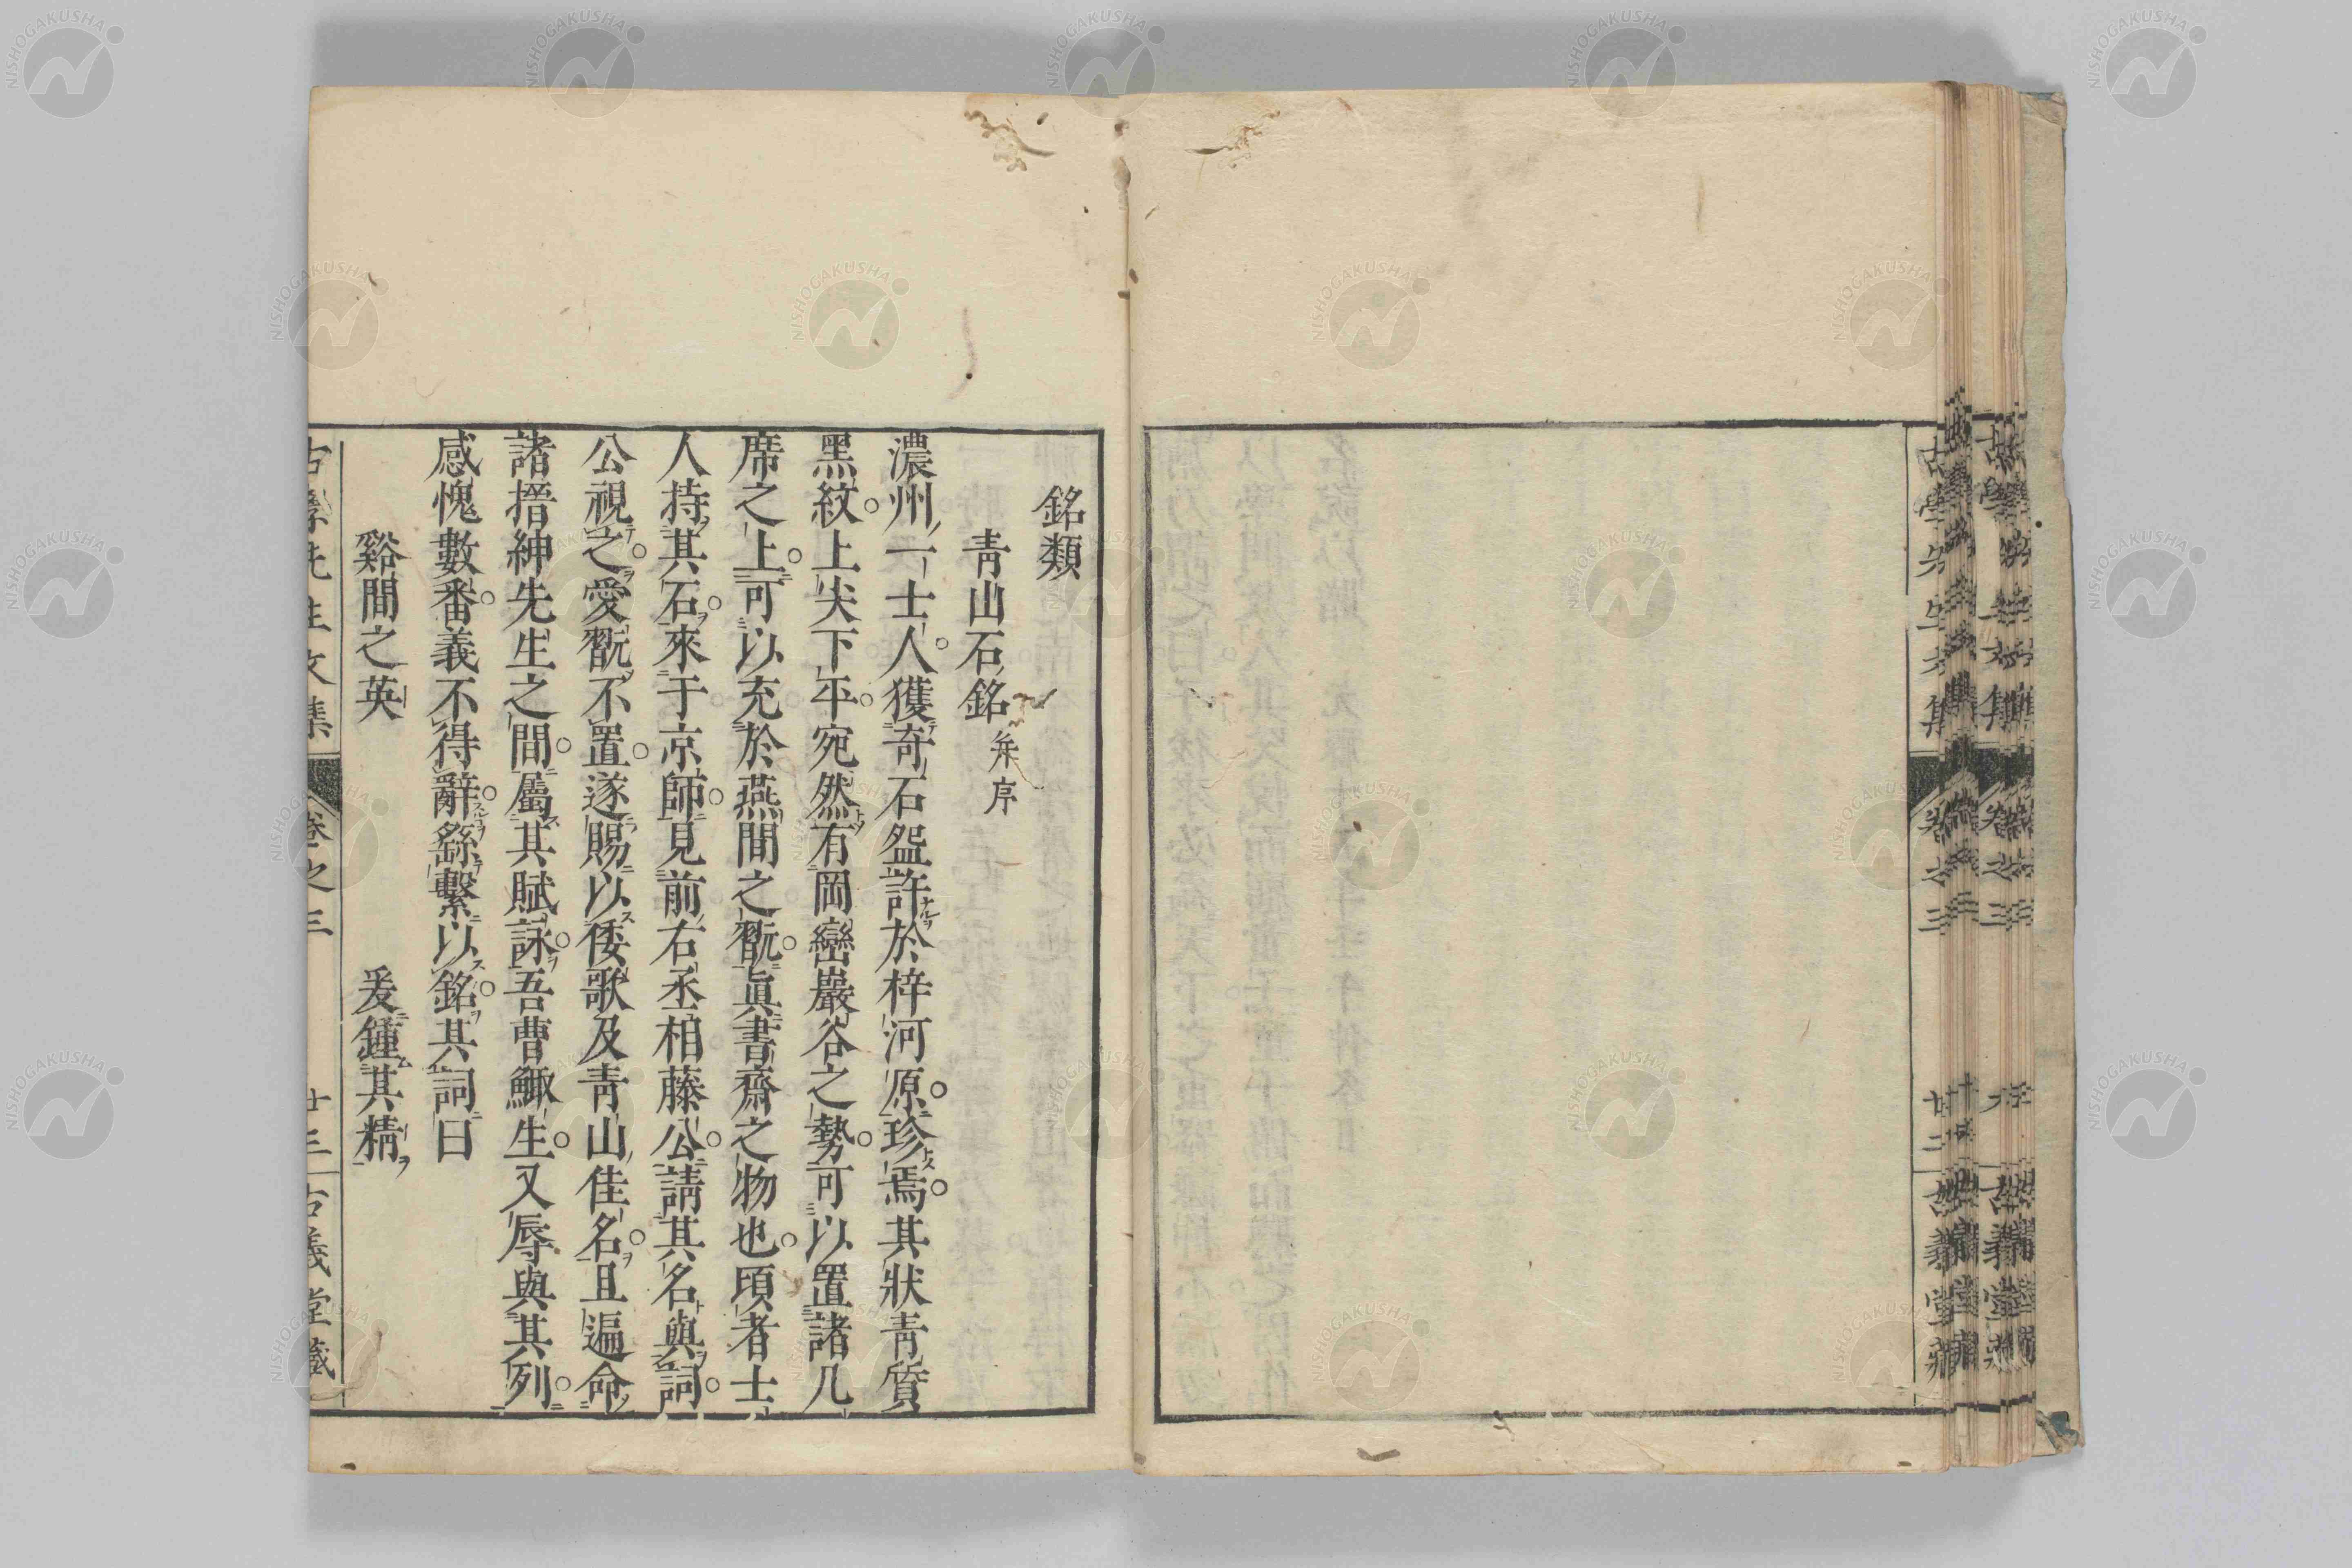 銘類
青山石銘 幷序
濃州一士人獲奇石盌許於梓河原珍焉其狀青質
黑紋上尖下平宛然有岡巒巖谷之勢可以置諸几
席之上可以充於燕間之翫眞書齋之物也頃者士
人持其石來于京師見前右丞相藤公請其名與詞
公視之愛翫不置遂賜以倭歌及青山佳名且遍命
諸搢紳先生之間屬其賦詠吾曹鯫生又辱與其列
感愧數番義不得辭繇繫以銘其詞曰
谿間之英 爰鍾其精
古學先生文集 卷之三 廿三 古義堂藏